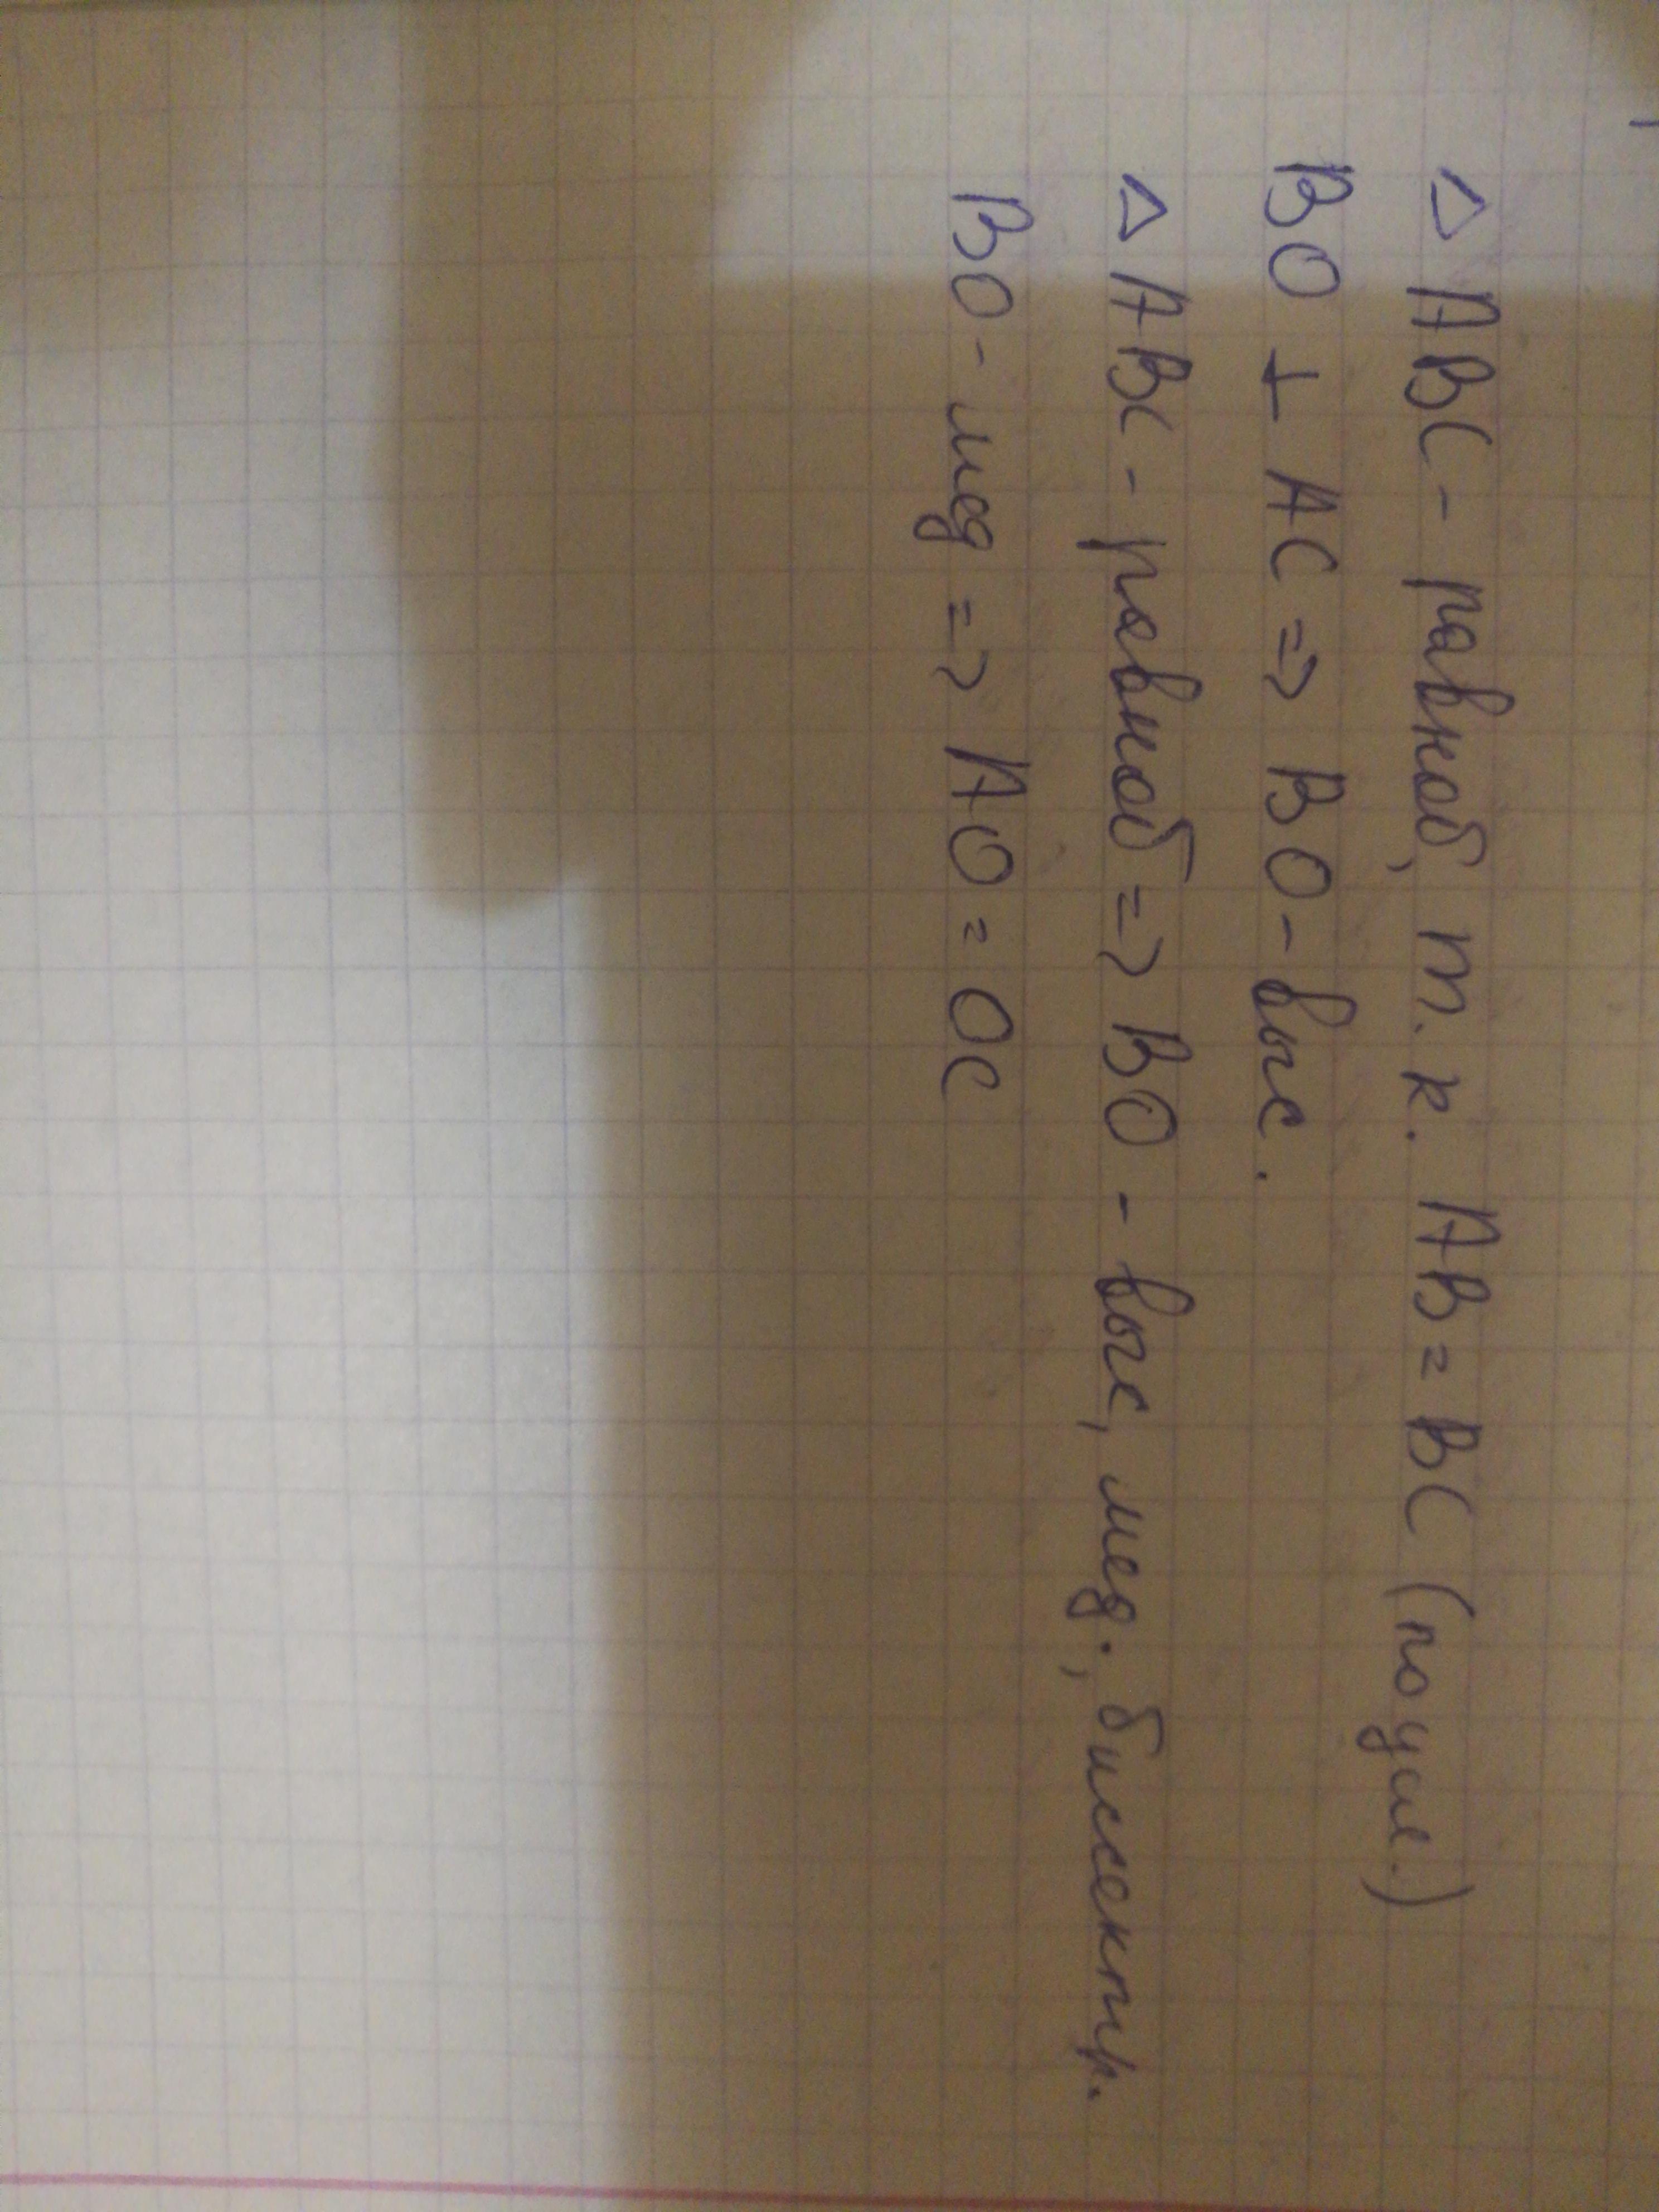 △ ABC - равноб, т.к. AB = BC (по усл.)
BO ⊥ AC => BO - выс.
△ ABC - равноб => BO - выс, мед., биссектр.
BO - мед => AO = OC